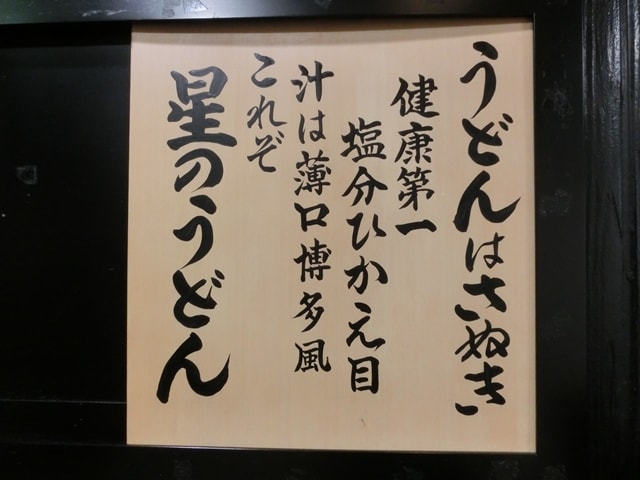 うどんはさぬき
健康第一
塩分ひかえ目
汁は薄口博多風
これぞ
星のうどん